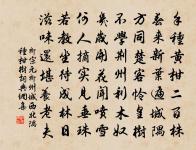 手種黃柑二百株
春來新葉遍城隅
方同楚客憐皇樹
不學荊州利木奴
幾歲開花聞噴雪
何人摘實見垂珠
若教坐待成林日
滋味還堪養老夫
柳宗元柳州城西北隅
種柑樹詞典網集